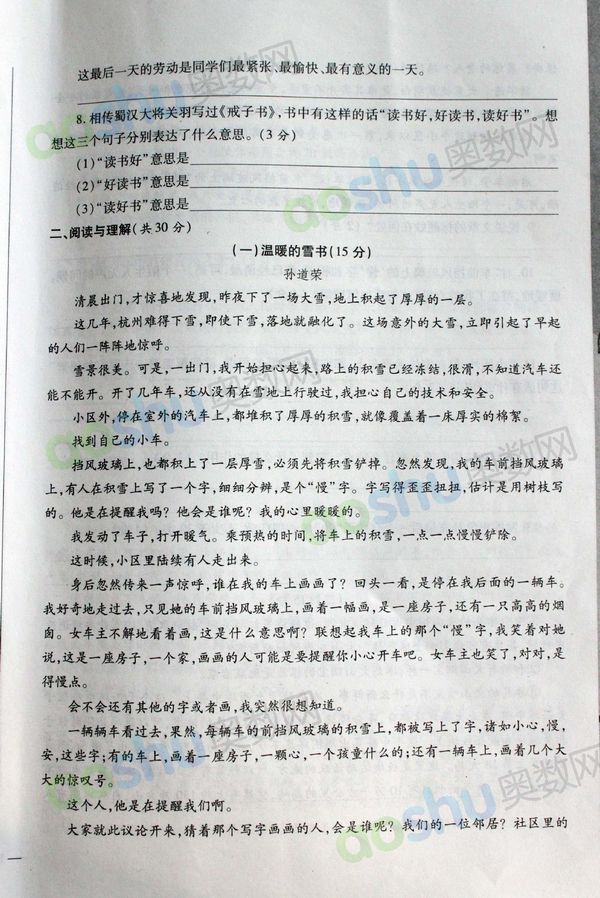 这最后一天的劳动是同学们最紧张、最愉快、最有意义的一天。
8.相传蜀汉大将关羽写过《戒子书》,书中有这样的话“读书好,好读书,读好书”。想
想这三个句子分别表达了什么意思。(3 分)
(1)“读书好”意思是
(2)“好读书”意思是
(3)“读好书”意思是
二、阅读与理解(共 30 分)
(一)温暖的雪书(15 分)
孙道荣
清晨出门,才惊喜地发现,昨夜下了一场大雪,地上积起了厚厚的一层。
这几年,杭州难得下雪,即使下雪,落地就融化了。这场意外的大雪,立即引起了早起
的人们一阵阵地惊呼。
雪景很美。可是,一出门,我开始担心起来,路上的积雪已经冻结,很滑,不知道汽车还
能不能开。开了几年车,还从没有在雪地上行驶过,我担心自己的技术和安全。
小区外,停在室外的汽车上,都堆积了厚厚的积雪,就像覆盖着一床厚实的棉絮。
找到自己的小车。
挡风玻璃上,也都积上了一层厚雪,必须先将积雪铲掉。忽然发现,我的车前挡风玻璃
上,有人在积雪上写了一个字,细细分辨,是个“慢”字。字写得歪歪扭扭,估计是用树枝写
的。他是在提醒我吗?他会是谁呢?我的心里暖暖的。
我发动了车子,打开暖气。乘预热的时间,将车上的积雪,一点一点慢慢铲除。
这时候,小区里陆续有人走出来。
身后忽然传来一声惊呼,谁在我的车上画画了?回头一看,是停在我后面的一辆车。
我好奇地走过去,只见她的车前挡风玻璃上,画着一幅画,是一座房子,还有一只高高的烟
囱。女车主不解地看着画,这是什么意思啊?联想起我车上的那个“慢”字,我笑着对她
说,这是一座房子,一个家,画画的人可能是要提醒你小心开车吧。女车主也笑了,对对,是
得慢点。
会不会还有其他的字或者画,我突然很想知道。
一辆辆车看过去,果然,每辆车的前挡风玻璃的积雪上,都被写上了字,诸如小心,慢,
安,这些字;有的车上,画着一座房子,一颗心,一个孩童什么的;还有一辆车上,画着几个大
大的惊叹号。
这个人,他是在提醒我们啊。
大家就此议论开来,猜着那个写字画画的人,会是谁呢?我们的一位邻居?社区里的
aoshu奥数网
aoshu奥数网
aoshu奥数网
aoshu奥数网
aoshu奥数网
aoshu奥数网